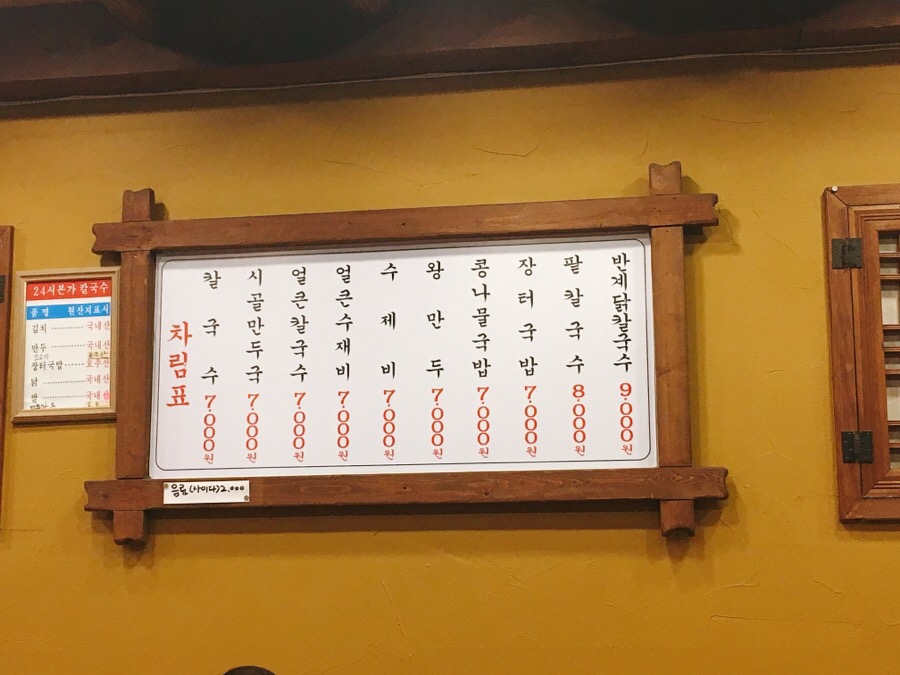 24시본가 칼국수
품명 원산지표시
김치 국내산
만두 국내산
소고기
장터국밥 호주산
닭 국내산
쌀 국내산
차림표
칼국수 7,000원
시골만두국 7,000원
얼큰칼국수 7,000원
얼큰수재비 7,000원
수제비 7,000원
왕만두 7,000원
콩나물국밥 7,000원
장터국밥 7,000원
팥칼국수 8,000원
반계닭칼국수 9,000원
음료(사이다)2,000